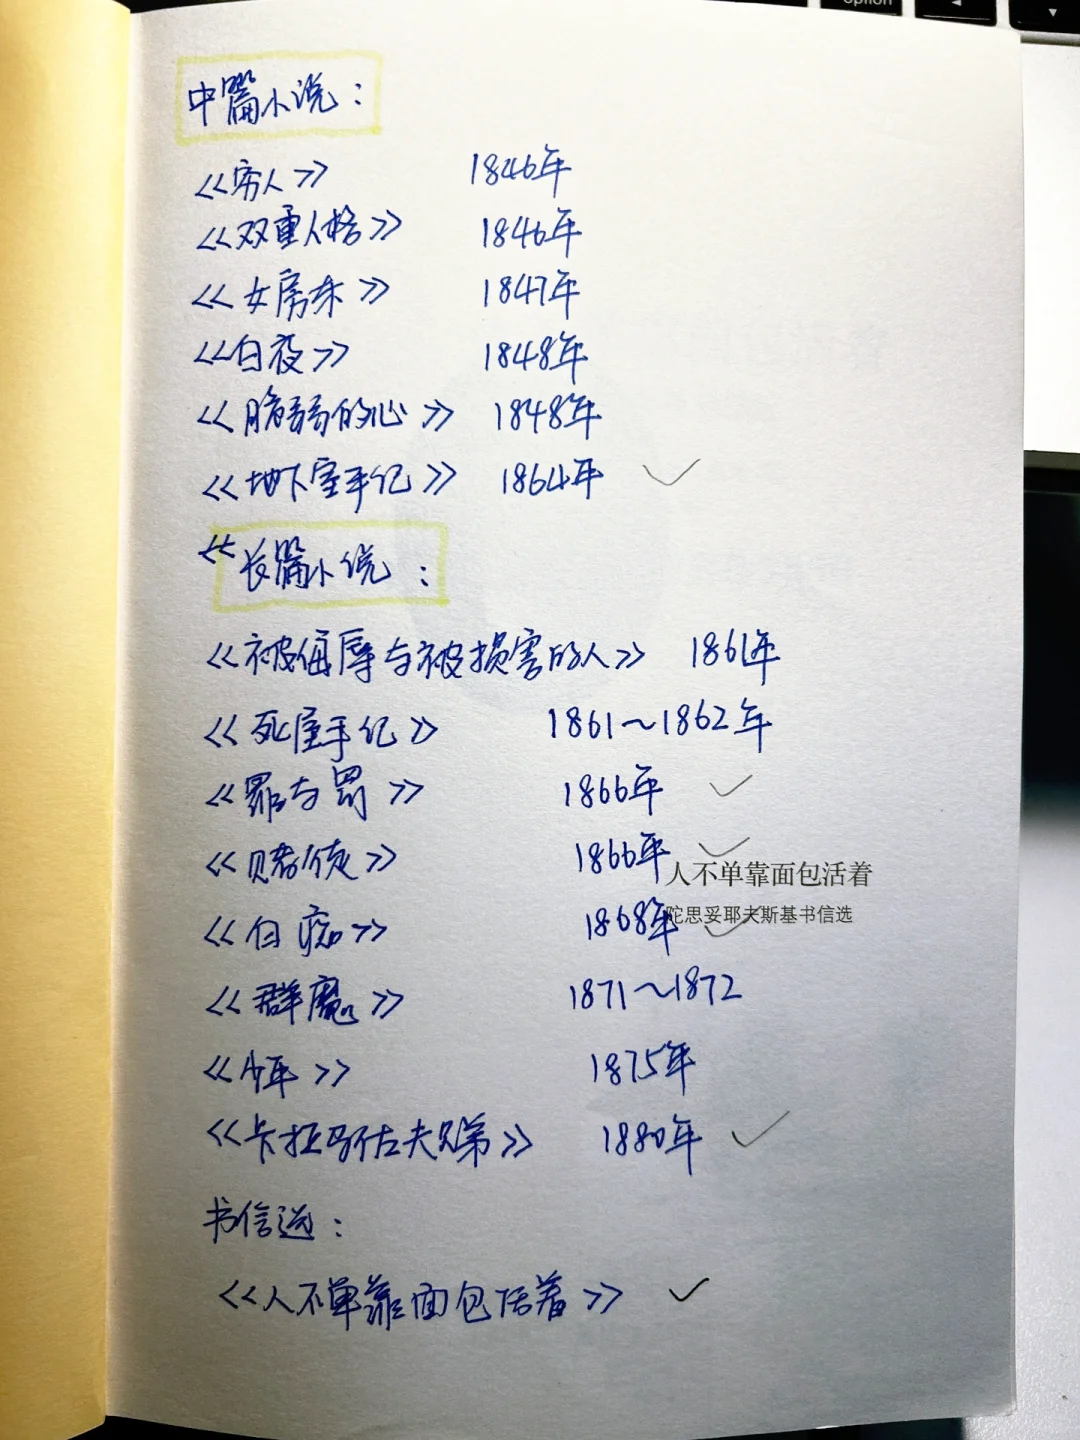 option
中篇小说：
<<穷人>> 1846年
<<双重人格>> 1846年
<<女房东>> 1847年
<<白夜>> 1848年
<<脆弱的心>> 1848年
<<地下室手记>> 1864年 ✓
<<长篇小说：
<<被侮辱与被损害的人>> 1861年
<<死屋手记>> 1861～1862年
<<罪与罚>> 1866年 ✓
<<赌徒>> 1866年 ✓
人不单靠面包活着
陀思妥耶夫斯基书信选
<<白痴>> 1868年 ✓
<<群魔>> 1871～1872
<<少年>> 1875年
<<卡拉马佐夫兄弟>> 1880年 ✓
书信选：
<<人不单靠面包活着>> ✓